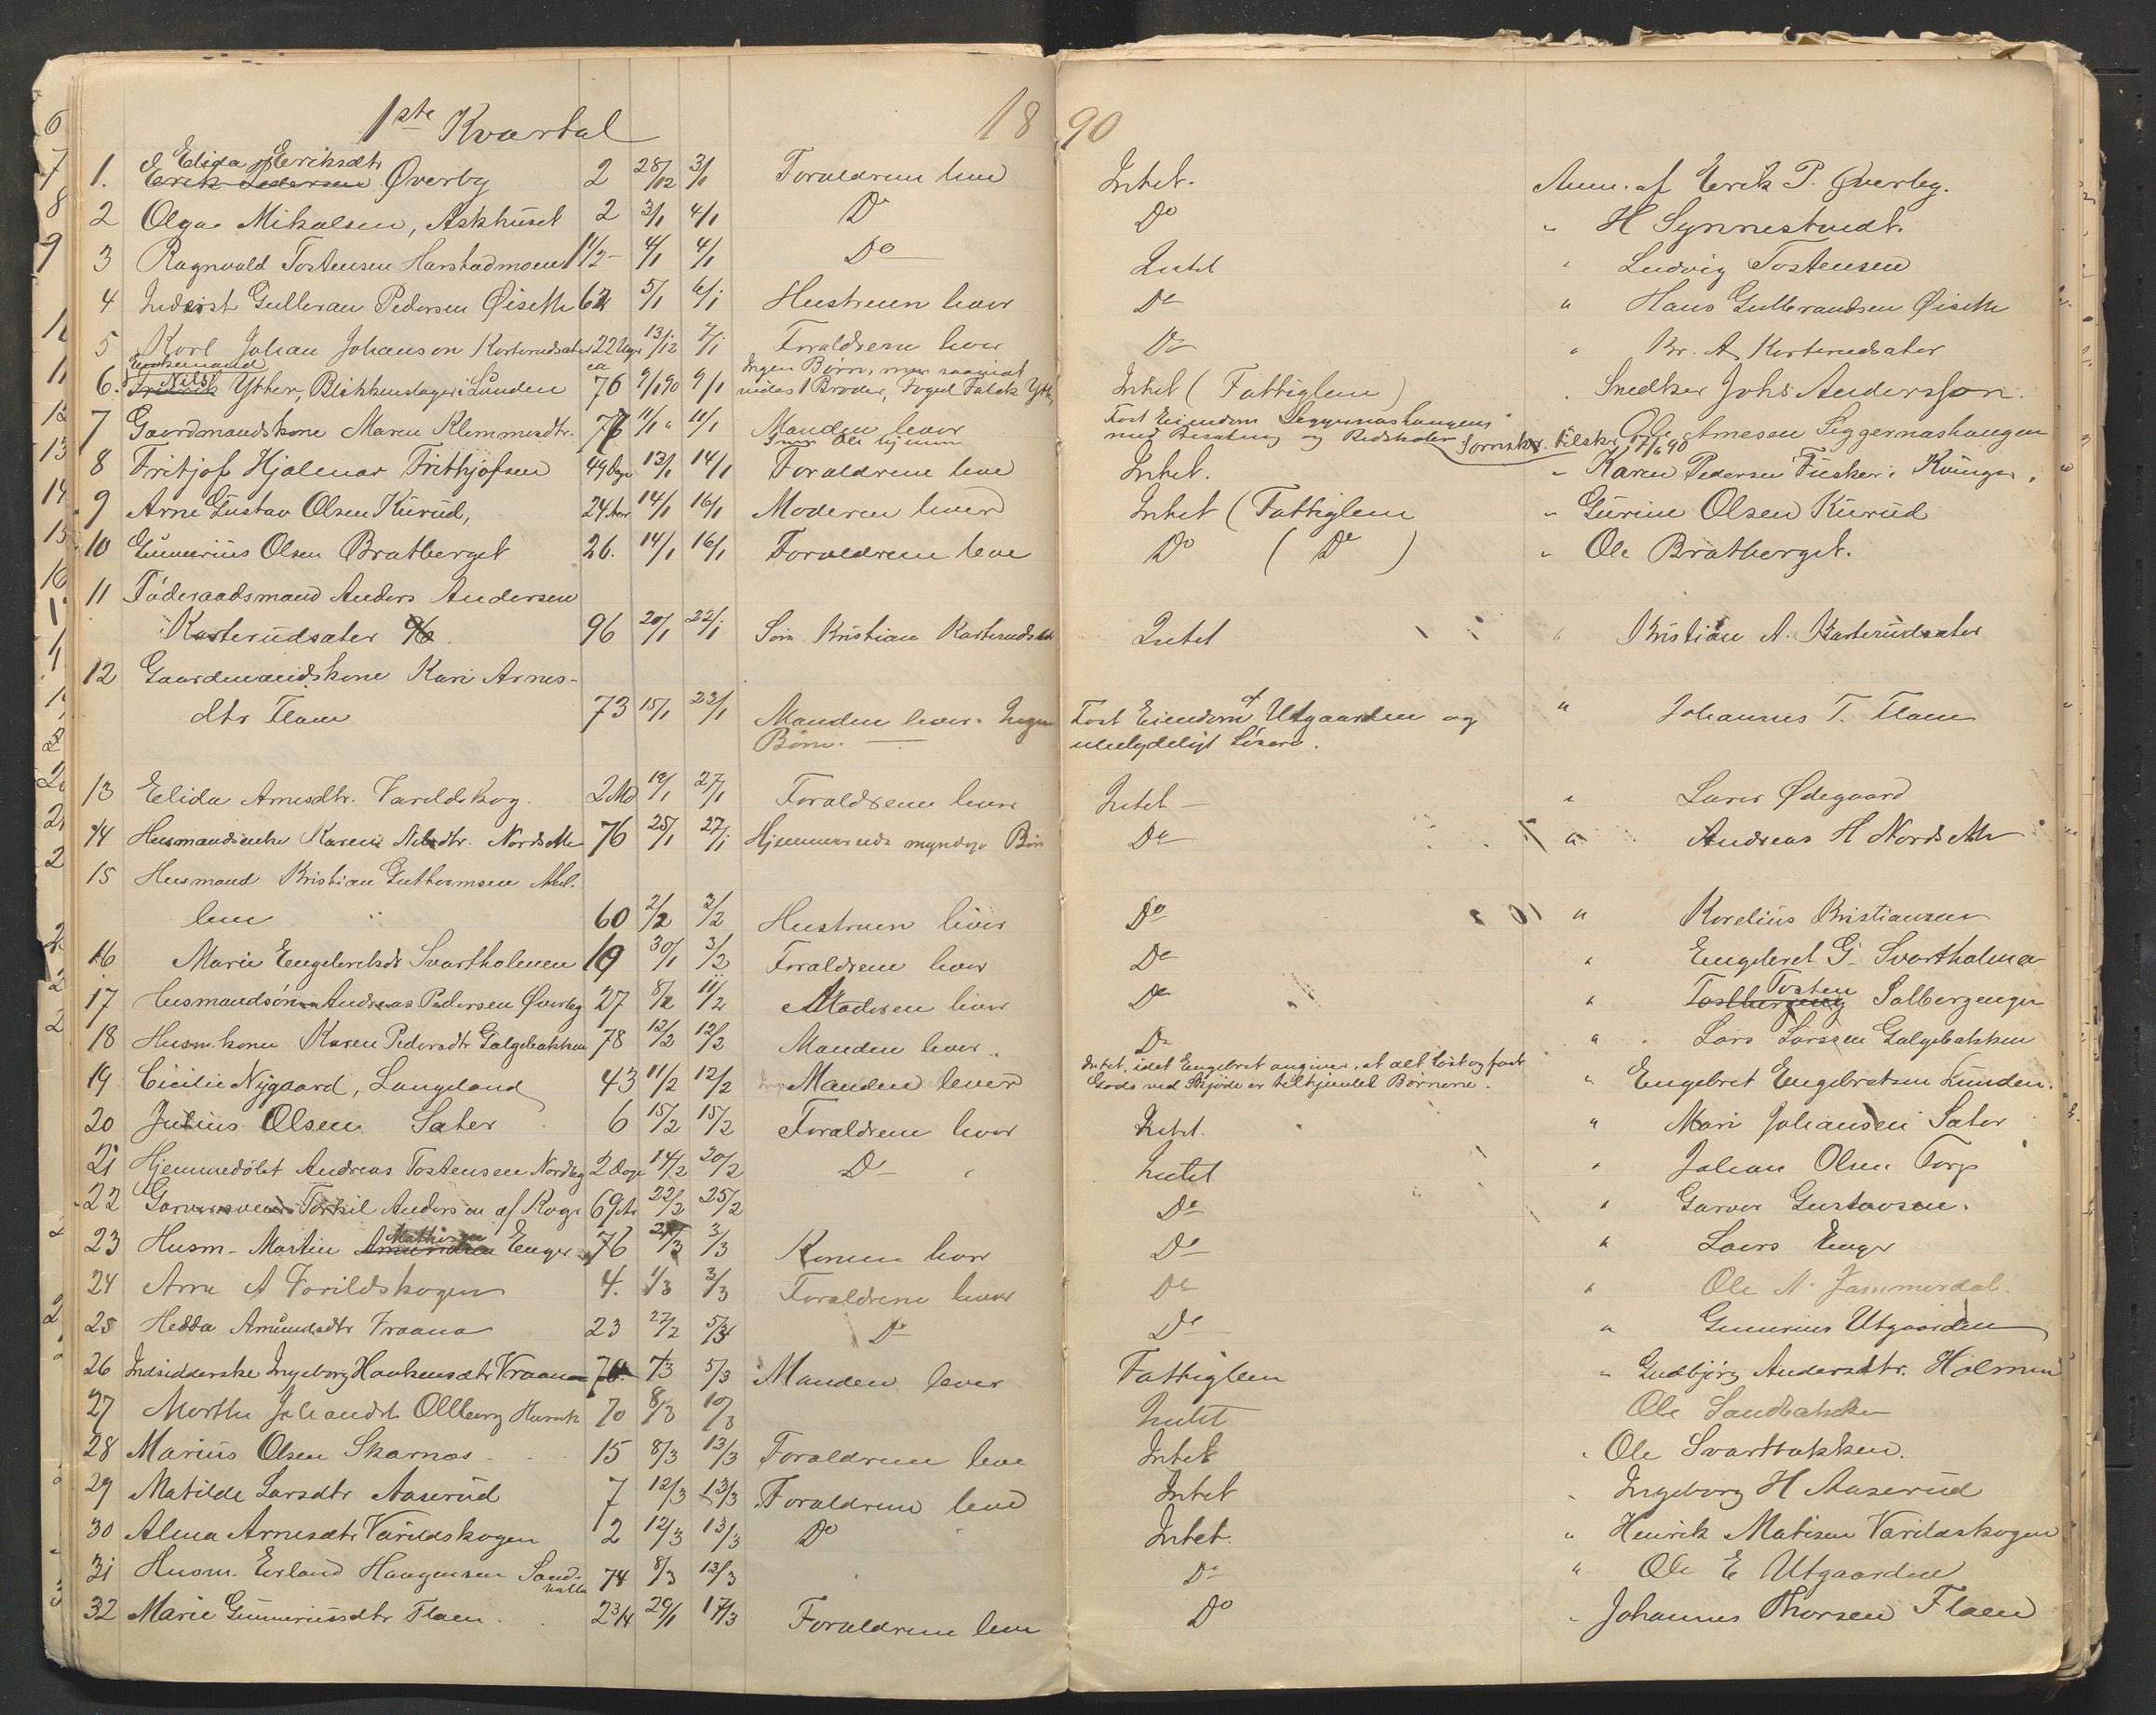 1ste Kvartal 1890
1. Elida Eriksdtr Erik Pedersen Øverby 2 28/12 3/1 Foraldrene leve Intet. Anm. af Erik P. Øverby.
2 Olga Mikalsen, Askhuset 2 3/1 4/1 Do Do " H Synnestvedt.
3 Ragnvald Tostensen Harstadmoen 1 1/2 - 4/1 4/1 Do Intet " Ludvig Tostensen
4 Inderst Gulleran Pedersen Øiseth 62 5/1 6/1 Hustruen lever Do " Hans Gulbrandsen Øiseth
5 Karl Johan Johansen Karterudsater 22 Uger 13/12 7/1 Foraldrene lever Do " Kr. A. Karterudsater
Enkemand ca Ingen Børn, men
6. Fredrik Nils Ytter, Blikkenslager i Lunden 76 9/1 90 9/1 1 Broder, Foged Falck Ytter Intet (Fattiglem) " Snedker Johs Andersson.
7 Gaardmandskone Maren Klemmesdtr. 76 11/1 " 11/1 Manden lever Fast Eiendom Seggernashaugen
med Besætning og Redskaber Ole Arnesen Siggernashaugen
8 Fritjof Hjalmar Frithjofsen 49 Dage 13/1 14/1 Foraldrene leve Intet. " Karen Pedersen Fusker i Kvinger,
9 Arne Gustav Olsen Kurud, 24 14/1 16/1 Moderen lever Intet (Fattiglem " Gurine Olsen Kurud
10 Gunnerius Olsen Bratberget 26. 14/1 16/1 Foraldrene leve Do (Do) " Ole Bratberget.
11 Føderaadsmand Anders Andersen
Karterudsater 96 96 20/1 22/1 Søn Kristian Karterudsater Intet " Kristian A. Karterudsater
12 Gaardmandskone Kari Arnes-
dtr Flaen 73 15/1 23/1 Manden lever. Ingen Fast Eiendom af Utgaarden og " Johannes T. Flaen
Børn. — ubetydeligt Løsøre.
13 Elida Arnesdtr. Varildskog. 2 Md 19/1 27/1 Foraldrene leve Intet — " Lars Ødegaard
14 Husmandsenke Karen Nilsdtr. Nordseth 76 25/1 27/1 Hjemmevænde myndige Børn Do " Andreas H Nordseth
15 Husmand Kristian Guthormsen Møl-
len 60 2/2 3/2 Hustruen lever Do " Korelius Kristiansen
16 Marie Engebretsdr Svartholmen 19 30/1 3/2 Foraldrene lever Do " Engebret G. Svartholmen
17 Husmandsøn Andreas Pedersen Øverby 27 8/2 11/2 Moderen lever Do " Tosten Solbergenger
18 Husm. kone Karen Pedersdtr Galgebakken 78 12/2 12/2 Manden lever. Do " Lars Larssen Galgebakken
19 Cicilie Nygaard, Langeland 43 11/2 12/2 Manden lever Intet, idet Engebret angiver, at alt Løst og fast
Gods ved Skjøde er tilhjemlet Børnene. " Engebret Engebretsen Lunden.
20 Julius Olsen Sater 6 15/2 15/2 Foraldrene lever Intet. " Mari Johansen Sater
21 Hjemmedøbt Andreas Tostensen Nordby 2 Dage 14/2 20/2 Do Intet " Johan Olsen Torp
22 Garversvend Torkil Andersen af Koge 69 22/2 25/2 Do " Garver Gustavsen.
23 Husm. Martin Amundsen Mathisen Enger 76 3/3 Konen lever Do " Lars Enger
24 Arne A Varildskogen 4. 1/3 3/3 Foraldrene lever Do " Ole A. Jammerdal.
25 Hedda Amundsdtr Vraana 23 27/2 5/3 Do Do " Gunerius Utgaarden
26 Indsidderske Ingeborg Haakensdtr Vraana 70. 1/3 5/3 Manden lever Fattiglem " Gudbjørg Andersdtr. Holmen
27 Marthe Johansdt Ollberg 70 8/3 10/3 Intet Ole Sandbakken
28 Marius Olsen Skarnas 15 8/3 13/3 Foraldrene leve Intet " Ole Svartbakken.
29 Matilde Larsdtr Aaserud 7 12/3 13/3 Foraldrene leve Intet " Ingeborg H Aaserud
30 Alma Arnesdtr Varildskogen 2 12/3 13/3 Do Intet. " Henrik Matisen Varildskogen
31 Husm. Erland Haagensen Sand- 74 8/3 13/3 Do " Ole E Utgaarden
32 Marie Gunneriusdtr Flaen. 2 3/4 29/1 17/3 Foraldrene leve Do " Johannes Thorsen Flaen